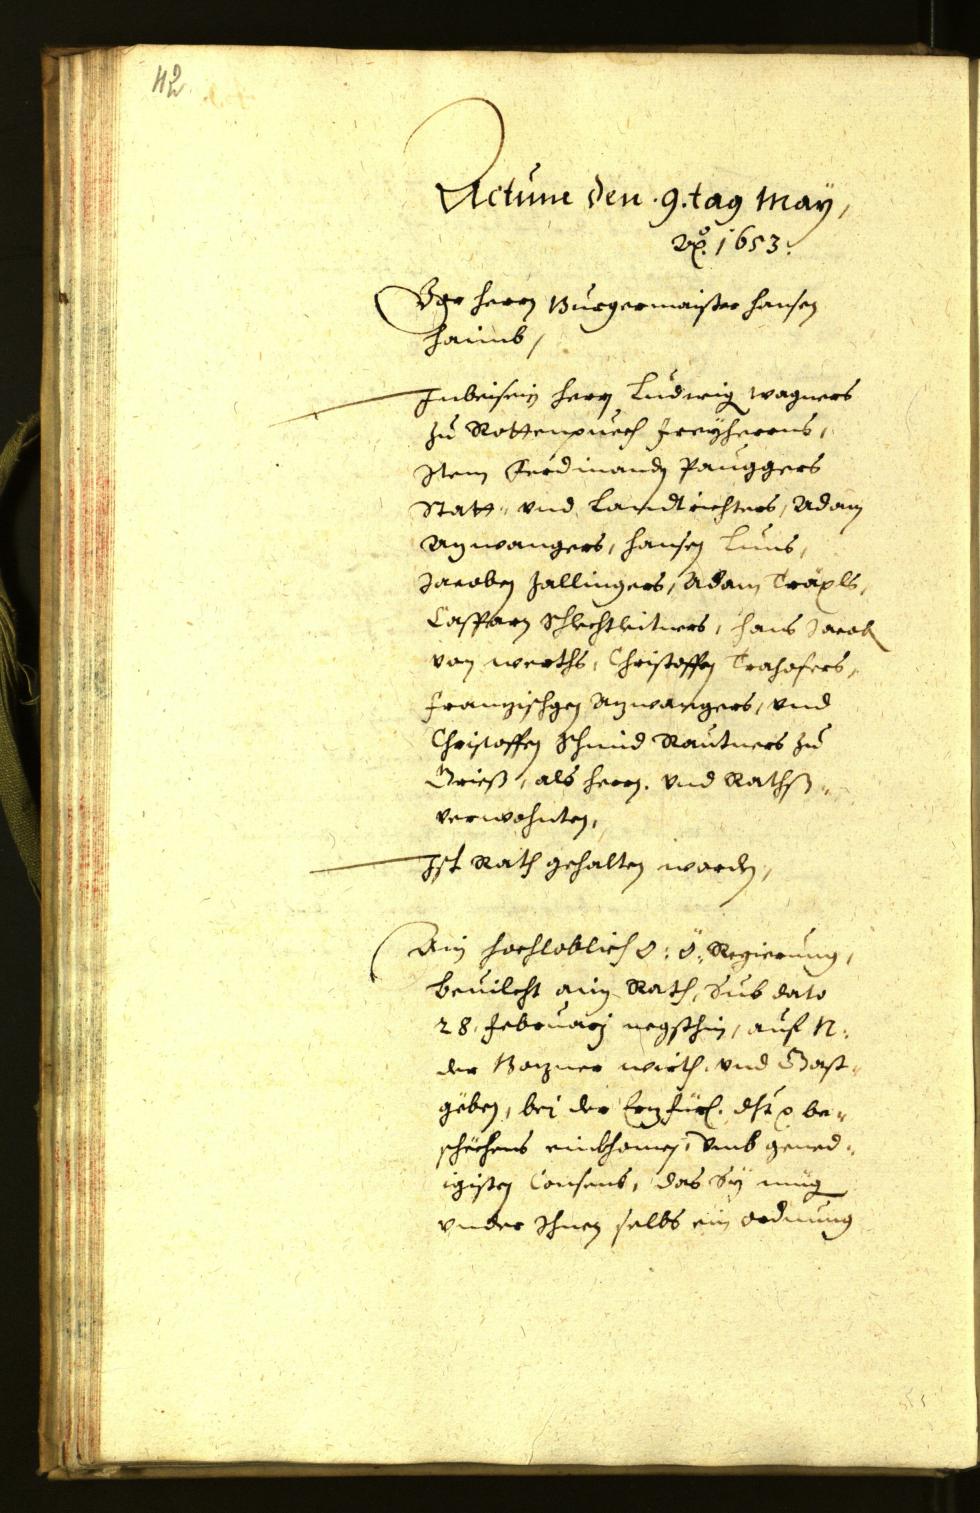 42
Actum den .9. tag May,
Aõ. 1653.
Vor herrn Burgermaister Hansen
Haimb,
Inbeisein herrn Ludwig Wagners
zu Rottenpuech Freyherrns,
Item Ferdinandn Pauggers
Statt- und Landtrichters, Adam
Azwangers, Hansen Luns,
Jacoben Zallingers, Adam Träxls,
Casparn Schlechtleitners, Hans Jacob
von Werths, Christoffen Trahofers,
Franzischgen Azwangers, und
Christoffen Schmid Rautners zu
Grieß, als herrn. und Rathß-
verwohnten,
Ist Rath gehalten worden,
Ain hochloblich O: Ö: Regierung,
bevilcht ain Rath, sub dato
28. Februarj negsthin, auf N:
der Bozner Wirth. und Gast-
geben, bei der Erzfürl. Dht p be-
schehens einkhomen, umb gened-
igisten Consens, das Sy mug
under Ihnen selbs ein ordnung